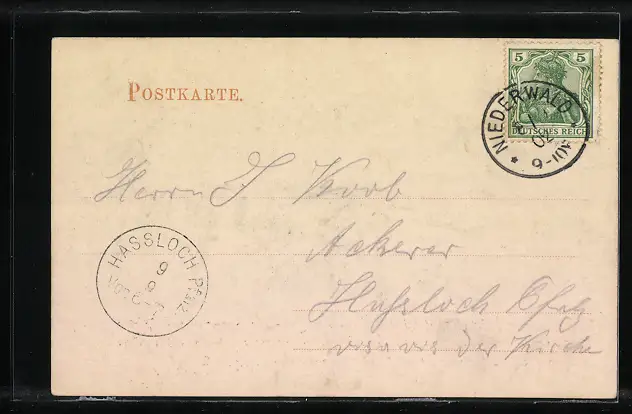 POSTKARTE.
5 5
DEUTSCHES REICH
NIEDERWALD
02
* 9-10V *
Herrn J. Korb
Ackerer
Hassloch Pfalz
vis a vis der Kirche
HASSLOCH PFALZ
9
9
VOR 6-7